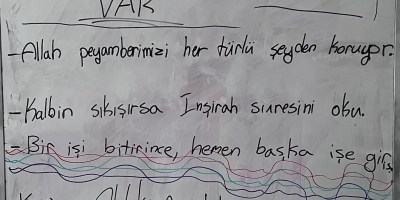 VAR
-Allah peygamberimizi her türlü şeyden koruyor.
-Kalbin sıkışırsa İnşirah suresini oku.
-Bir işi bitirince, hemen başka işe giriş